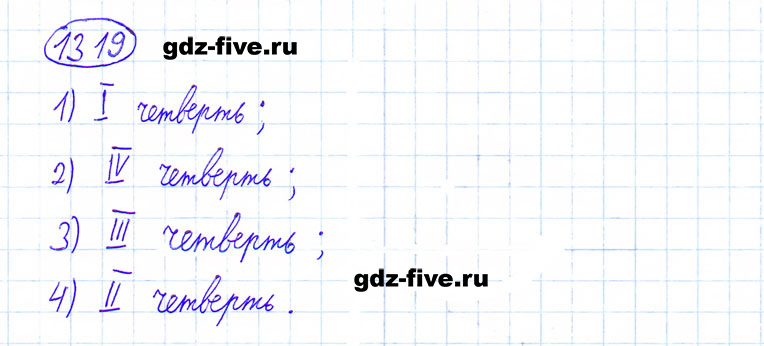 1319 gdz-five.ru
1) I четверть;
2) IV четверть;
3) III четверть;
4) II четверть.
gdz-five.ru